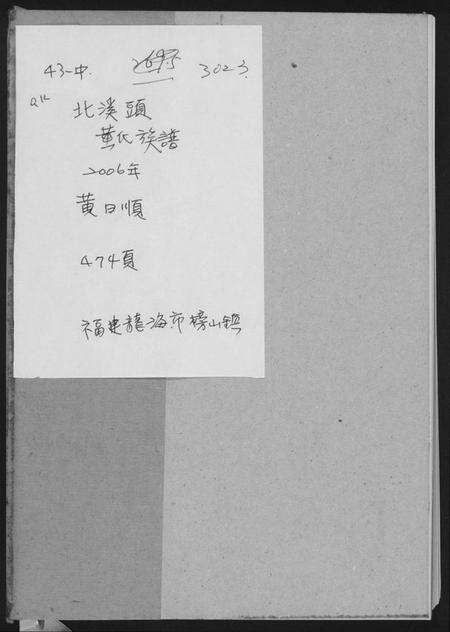 43-中. 3023.
北溪頭
黄氏族譜
2006年
黄日順
474頁
福建龍海市榜山鎮